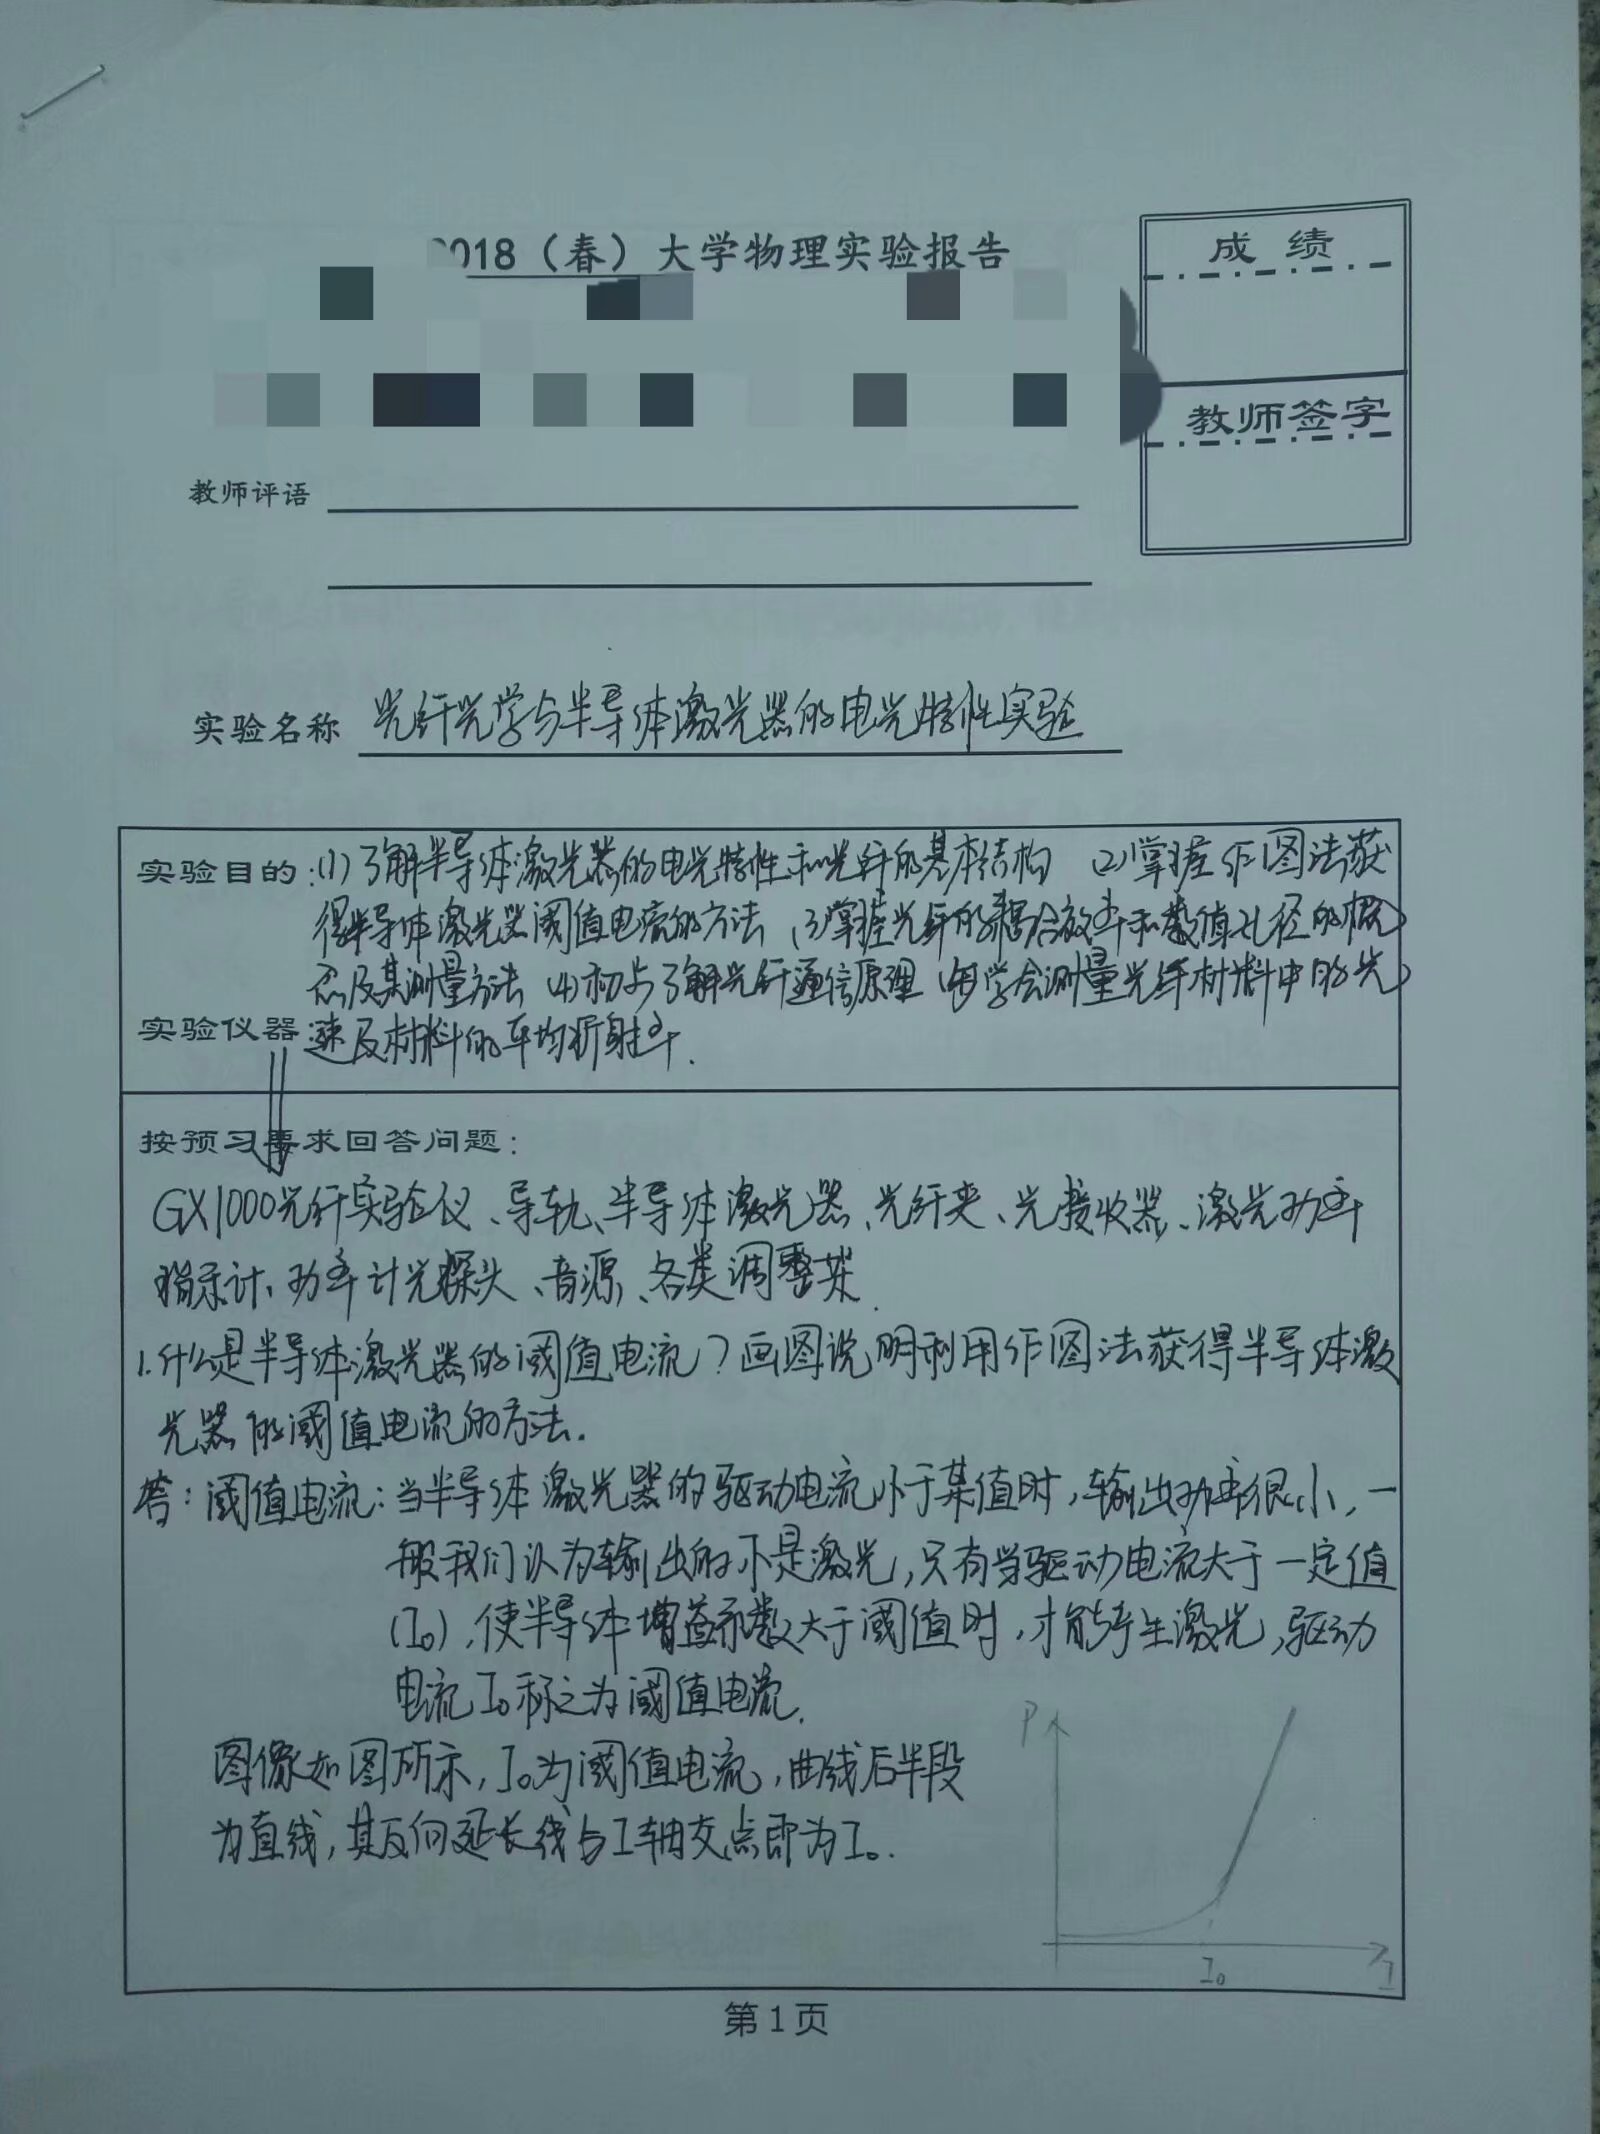 2018（春）大学物理实验报告
成 绩
教师签字
教师评语
实验名称 光纤光学与半导体激光器的电光特性实验
实验目的:(1)了解半导体激光器的电光特性和光纤的基本结构 (2)掌握作图法获
得半导体激光器阈值电流的方法 (3)掌握光纤的耦合效率和数值孔径的概
念及其测量方法 (4)初步了解光纤通信原理 (5)学会测量光纤材料中的光
实验仪器:速及材料的平均折射率.
按预习要求回答问题:
GX1000光纤实验仪、导轨、半导体激光器、光纤夹、光接收器、激光功率
指示计、功率计光探头、音源、各类调整架.
1.什么是半导体激光器的阈值电流?画图说明利用作图法获得半导体激
光器的阈值电流的方法.
答:阈值电流:当半导体激光器的驱动电流小于某值时,输出功率很小,一
般我们认为输出的不是激光,只有当驱动电流大于一定值
(I₀),使半导体增益系数大于阈值时,才能产生激光,驱动
电流I₀称之为阈值电流.
图像如图所示,I₀为阈值电流,曲线后半段
为直线,其反向延长线与I轴交点即为I₀.
P
I₀
I
第 1 页